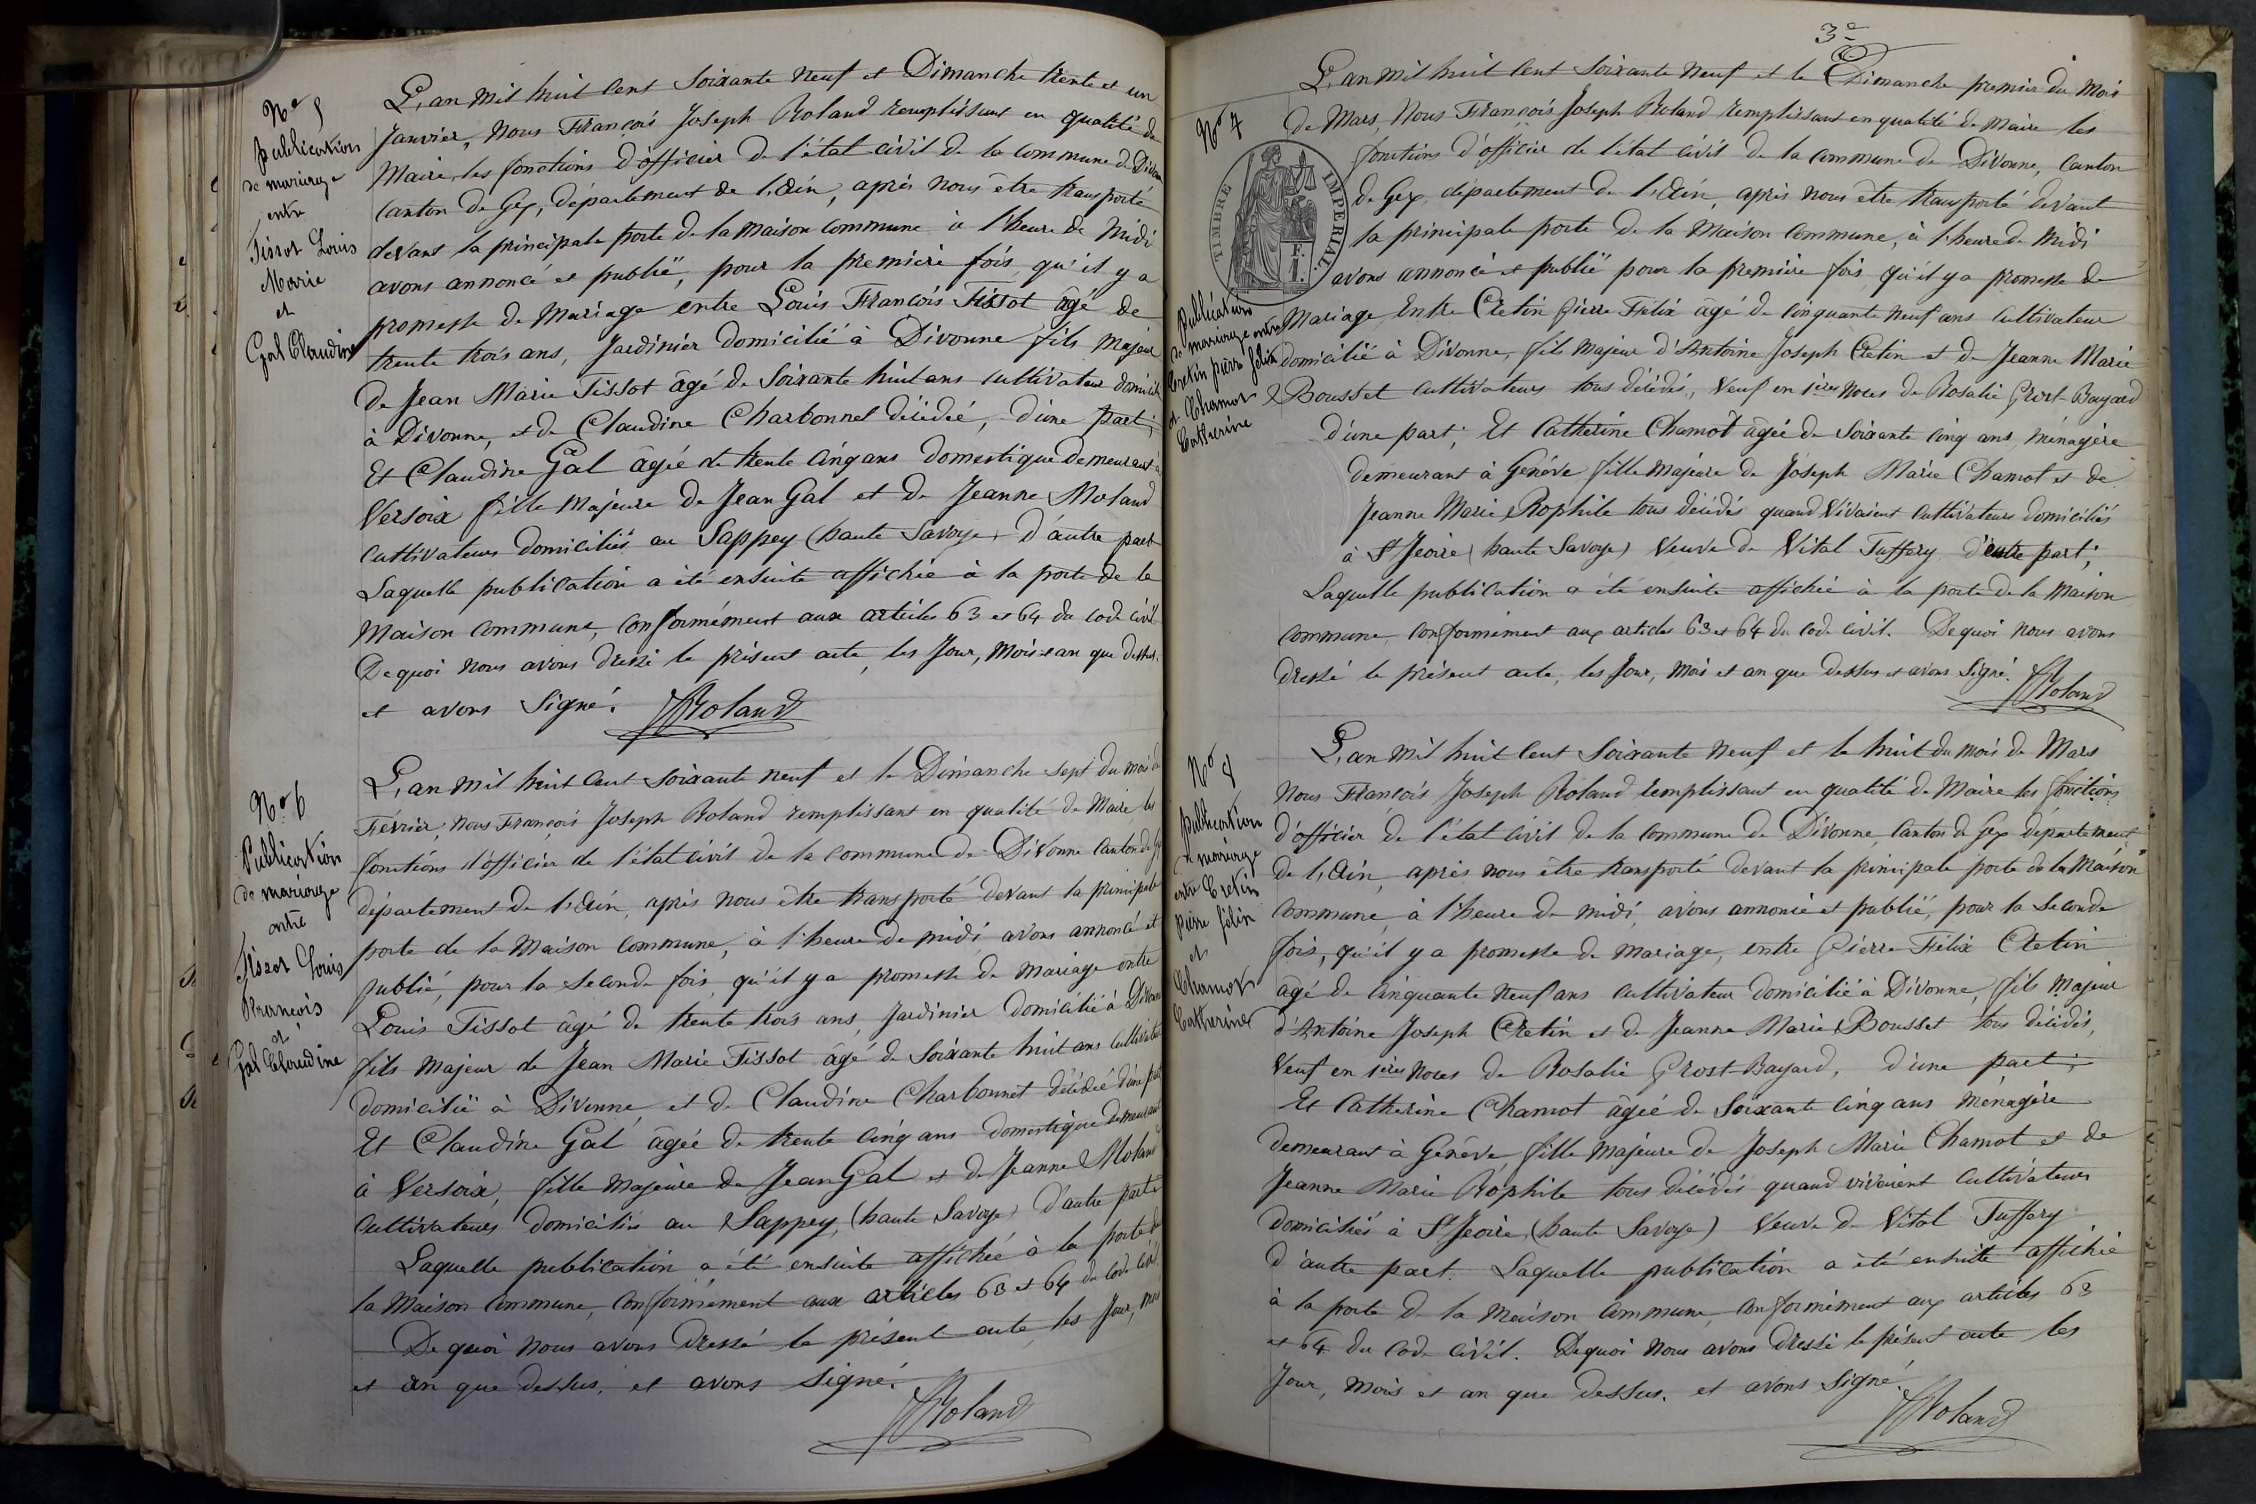 N° 5
publication
de mariage
entre
Tissot Louis
Marie
et
Gal Claudine
L'an mil huit cent soixante neuf et Dimanche trente et un
Janvier, Nous François Joseph Roland remplissant en qualité de
Maire, les fonctions d'officier de l'état civil de la commune de Divonne
canton de Gex, département de l'Ain, après nous être transporté
devant la principale porte de la maison commune à l'heure de Midi
avons annoncé et publié, pour la première fois, qu'il y a
promesse de Mariage entre Louis François Tissot âgé de
trente trois ans, Jardinier domicilié à Divonne fils majeur
de Jean Marie Tissot âgé de Soixante huit ans cultivateur domicilié
à Divonne, et de Claudine Charbonnet décédée, d'une part;
Et Claudine Gal âgée de trente cinq ans domestique demeurant à
Versoix fille majeure de Jean Gal et de Jeanne Moland
cultivateurs domiciliés au Sappey (haute Savoye) d'autre part
Laquelle publication a été ensuite affichée à la porte de la
Maison commune, conformément aux articles 63 et 64 du code civil
De quoi nous avons dressé le présent acte, les Jour, Mois et an que dessus
et avons Signé. FJRoland
N° 6
Publication
de mariage
entre
Tissot Louis
François
et
Gal Claudine
L'an mil huit cent soixante neuf et le Dimanche sept du mois de
Février, nous François Joseph Roland remplissant en qualité de Maire les
fonctions d'officier de l'état civil de la commune de Divonne canton de Gex
département de l'Ain, après nous être transporté devant la principale
porte de la Maison commune, à l'heure de midi avons annoncé et
publié, pour la seconde fois, qu'il y a promesse de mariage entre
Louis Tissot âgé de trente trois ans, Jardinier domicilié à Divonne
fils majeur de Jean Marie Tissot âgé de Soixante huit ans cultivateur
domicilié à Divonne et de Claudine Charbonnet décédée d'une part
Et Claudine Gal âgée de trente cinq ans domestique demeurant
à Versoix, fille majeure de Jean Gal et de Jeanne Moland
Cultivateurs domiciliés au Sappey, (haute Savoye) d'autre part
Laquelle publication a été ensuite affichée à la porte de
la Maison commune, conformément aux articles 63 et 64 du code civil
De quoi nous avons dressé le présent acte, les Jour, mois
et an que dessus, et avons signé.
FJRoland
3e
N° 7
TIMBRE IMPERIAL.
F.
1.
Publication
de mariage entre
Cretin pierre felix
et Chamot
Catherine
L'an mil huit cent soixante neuf et le Dimanche premier du Mois
de Mars, Nous François Joseph Roland remplissant en qualité de Maire les
fonctions d'officier de l'état civil de la commune de Divonne, canton
de Gex, département de l'Ain, après nous être transporté devant
la principale porte de la Maison commune, à l'heure de Midi
avons annoncé et publié pour la première fois, qu'il y a promesse de
Mariage, entre Cretin Pierre Félix âgé de cinquante neuf ans cultivateur
domicilié à Divonne, fils majeur d'Antoine Joseph Cretin et de Jeanne Marie
Bousset cultivateurs tous décédés, Veuf en 1ères Noces de Rosalie Grost-Bayard
d'une part; Et Catherine Chamot âgée de Soixante cinq ans, ménagère
demeurant à Genève fille majeure de Joseph Marie Chamot et de
Jeanne Marie Rophile tous décédés quand vivaient cultivateurs domiciliés
à St Jeoire (haute Savoye) Veuve de Vital Tuffery d'autre part;
Laquelle publication a été ensuite affichée à la porte de la Maison
commune, conformément aux articles 63 et 64 du code civil. De quoi nous avons
dressé le présent acte, les Jour, Mois et an que dessus et avons Signé.
FJRoland
N° 8
publication
de mariage
entre Cretin
Pierre félix
et
Chamot
Catherine
L'an mil huit cent soixante neuf et le huit du mois de Mars
Nous François Joseph Roland remplissant en qualité de Maire les fonctions
d'officier de l'état civil de la commune de Divonne, canton de Gex département
de l'Ain, après nous être transporté devant la principale porte de la Maison
commune, à l'heure de midi, avons annoncé et publié, pour la seconde
fois, qu'il y a promesse de mariage, entre Pierre Félix Cretin
âgé de cinquante neuf ans cultivateur domicilié à Divonne, fils Majeur
d'Antoine Joseph Cretin et de Jeanne Marie Bousset tous décédés,
Veuf en 1ères Noces de Rosalie Grost-Bayard, d'une part;
Et Catherine Chamot âgée de Soixante cinq ans ménagère
demeurant à Genève fille majeure de Joseph Marie Chamot et de
Jeanne Marie Rophile tous décédés quand vivaient cultivateurs
domiciliés à St Jeoire, (haute Savoye) Veuve de Vital Tuffery
d'autre part. Laquelle publication a été ensuite affichée
à la porte de la Maison commune, conformément aux articles 63
et 64 du code civil. De quoi nous avons dressé le présent acte les
Jour, mois et an que dessus. et avons signé.
FJRoland